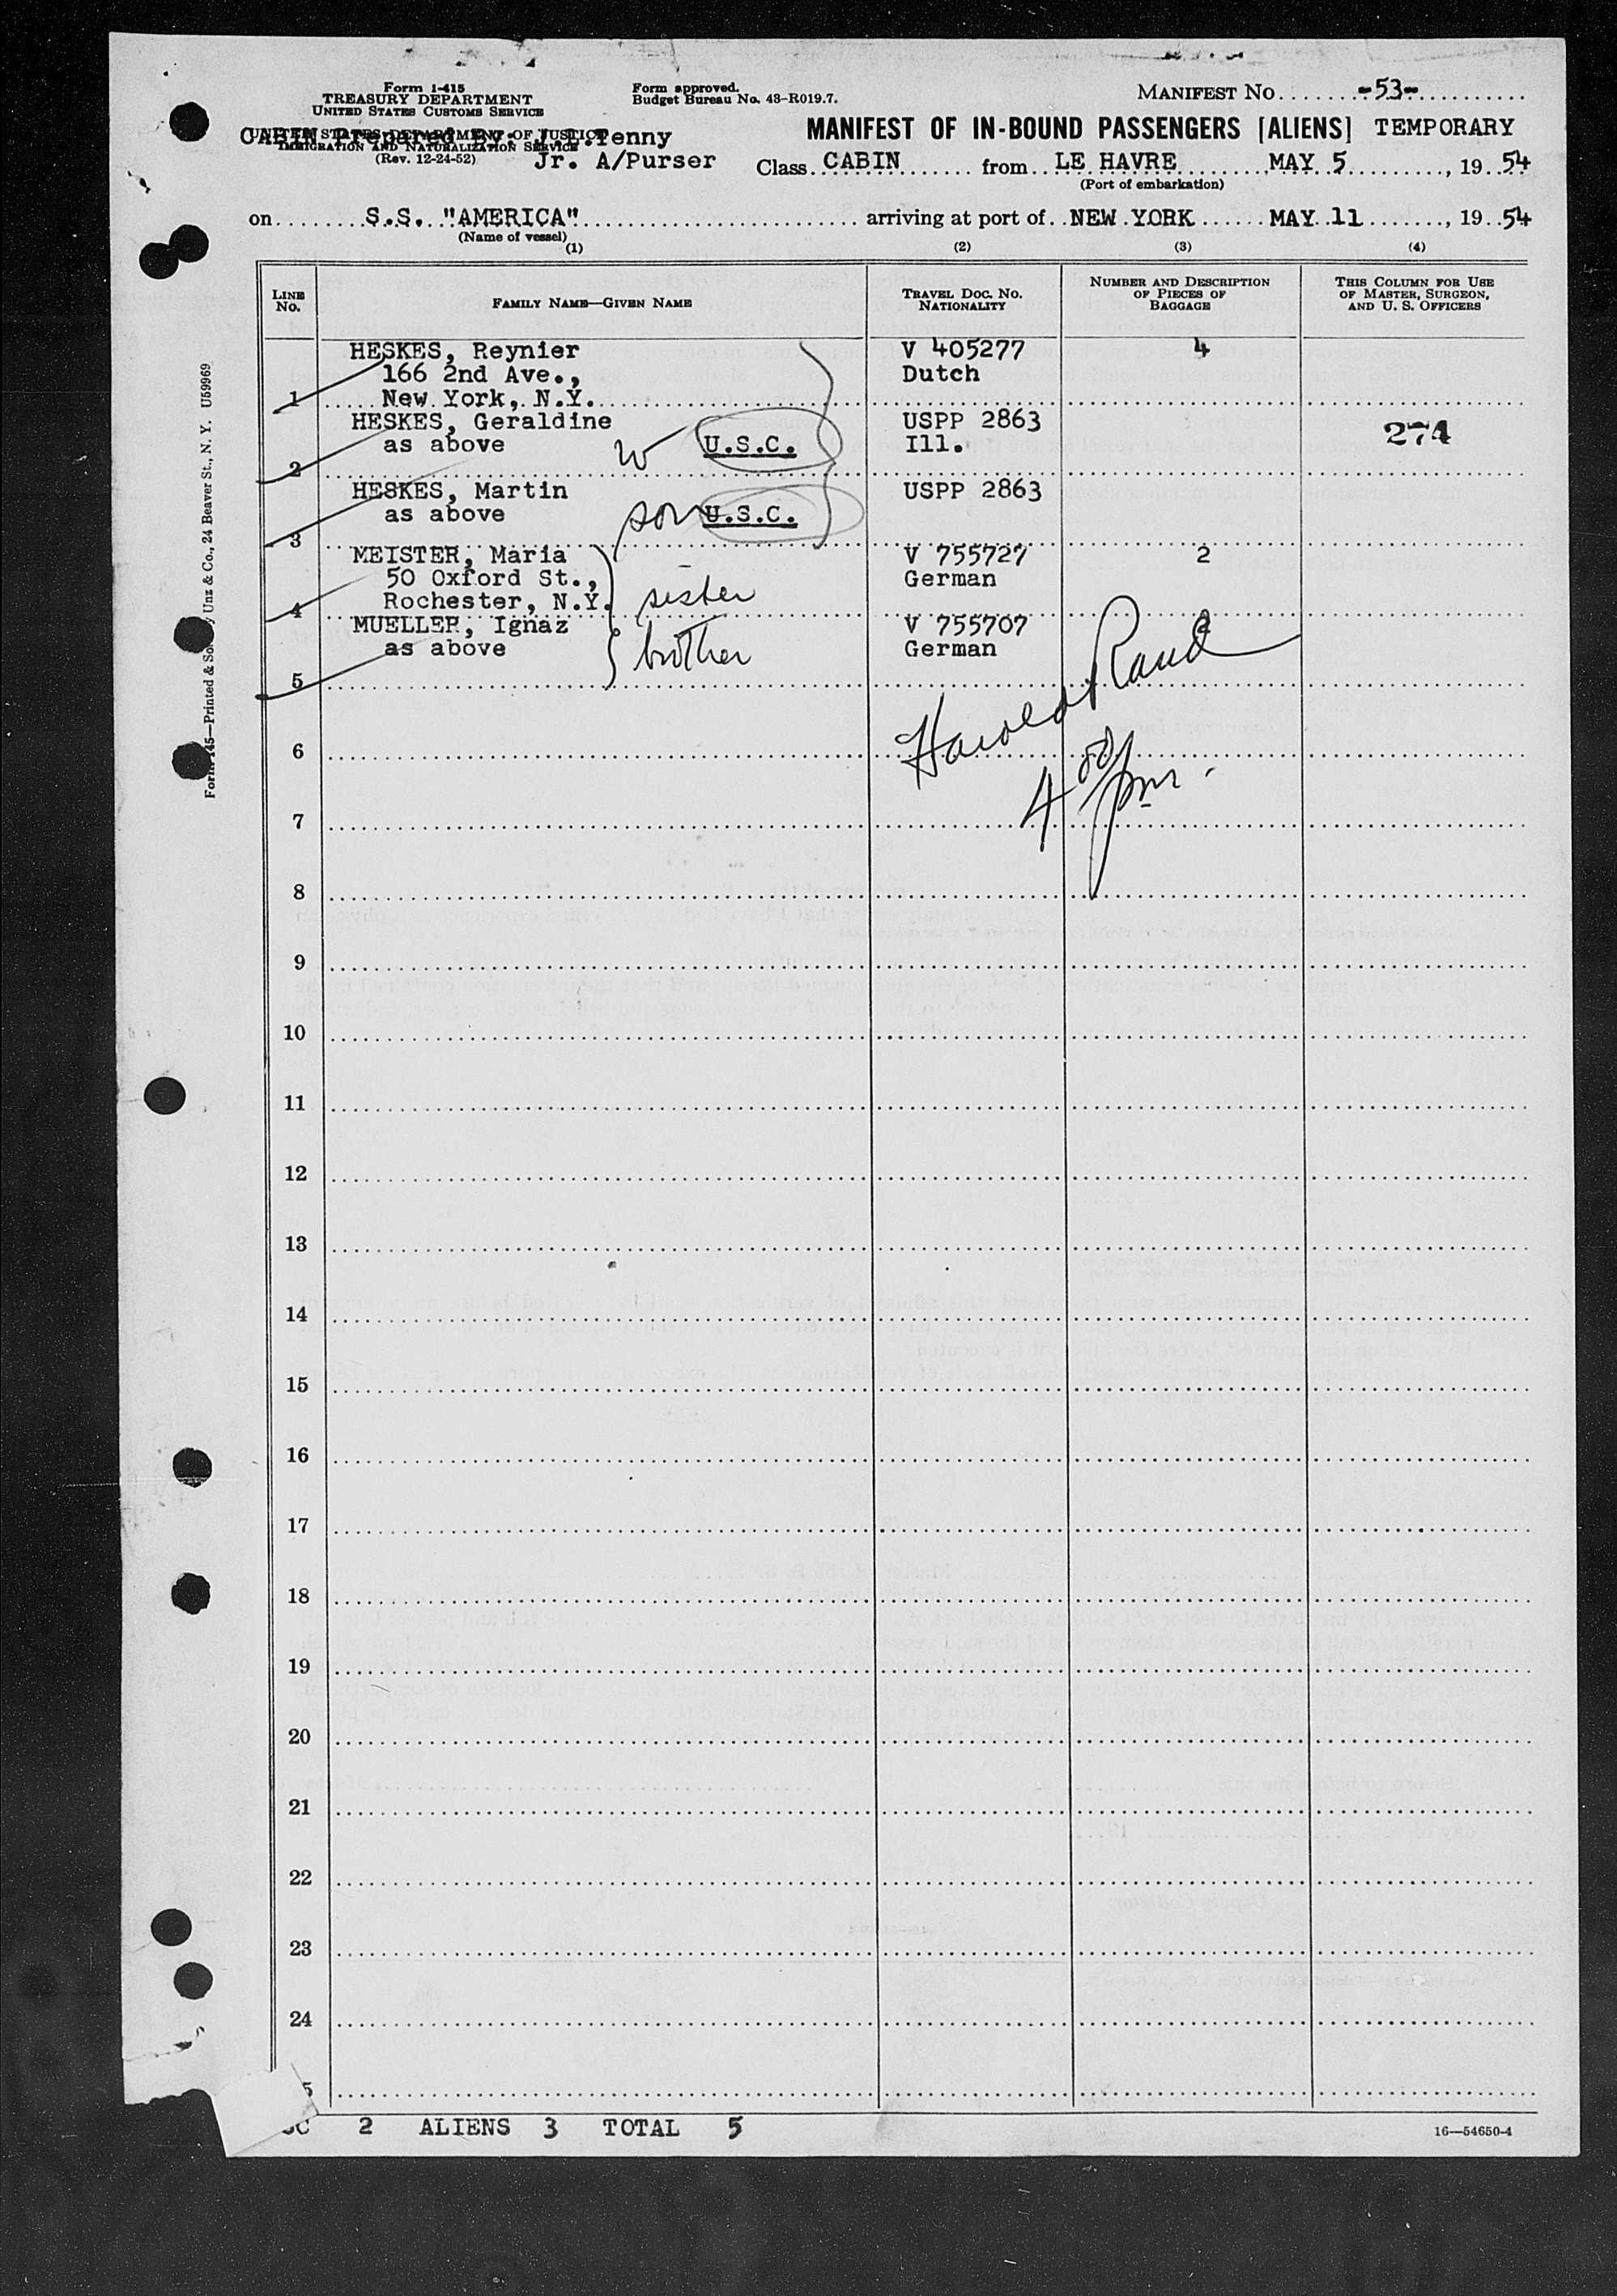 Form 1-415
TREASURY DEPARTMENT
UNITED STATES CUSTOMS SERVICE
UNITED STATES DEPARTMENT OF JUSTICE
IMMIGRATION AND NATURALIZATION SERVICE
(Rev. 12-24-52)
CABIN Prepared By Tenny
Jr. A/Purser
Form approved.
Budget Bureau No. 43-R019.7.
MANIFEST NO. -53-
MANIFEST OF IN-BOUND PASSENGERS [ALIENS] TEMPORARY
Class CABIN from LE HAVRE MAY 5, 19 54
(Port of embarkation)
on S.S. "AMERICA" arriving at port of NEW YORK MAY 11, 19 54
(Name of vessel)
(1) (2) (3) (4)
LINE NO. FAMILY NAME—GIVEN NAME TRAVEL DOC. NO. NATIONALITY NUMBER AND DESCRIPTION OF PIECES OF BAGGAGE THIS COLUMN FOR USE OF MASTER, SURGEON, AND U. S. OFFICERS
HESKES, Reynier V 405277 4
166 2nd Ave., Dutch
1 New York, N.Y.
HESKES, Geraldine USPP 2863
as above W U.S.C. Ill. 274
2
HESKES, Martin USPP 2863
as above son U.S.C.
3
MEISTER, Maria V 755727 2
50 Oxford St., sister German
4 Rochester, N.Y.
MUELLER, Ignaz V 755707 2
as above brother German
5
Harold Rand
4 00 pm.
6
7
8
9
10
11
12
13
14
15
16
17
18
19
20
21
22
23
24
5
2 ALIENS 3 TOTAL 5
16—54650-4
Form 145—Printed & Sold by Unz & Co., 24 Beaver St., N. Y. U59969